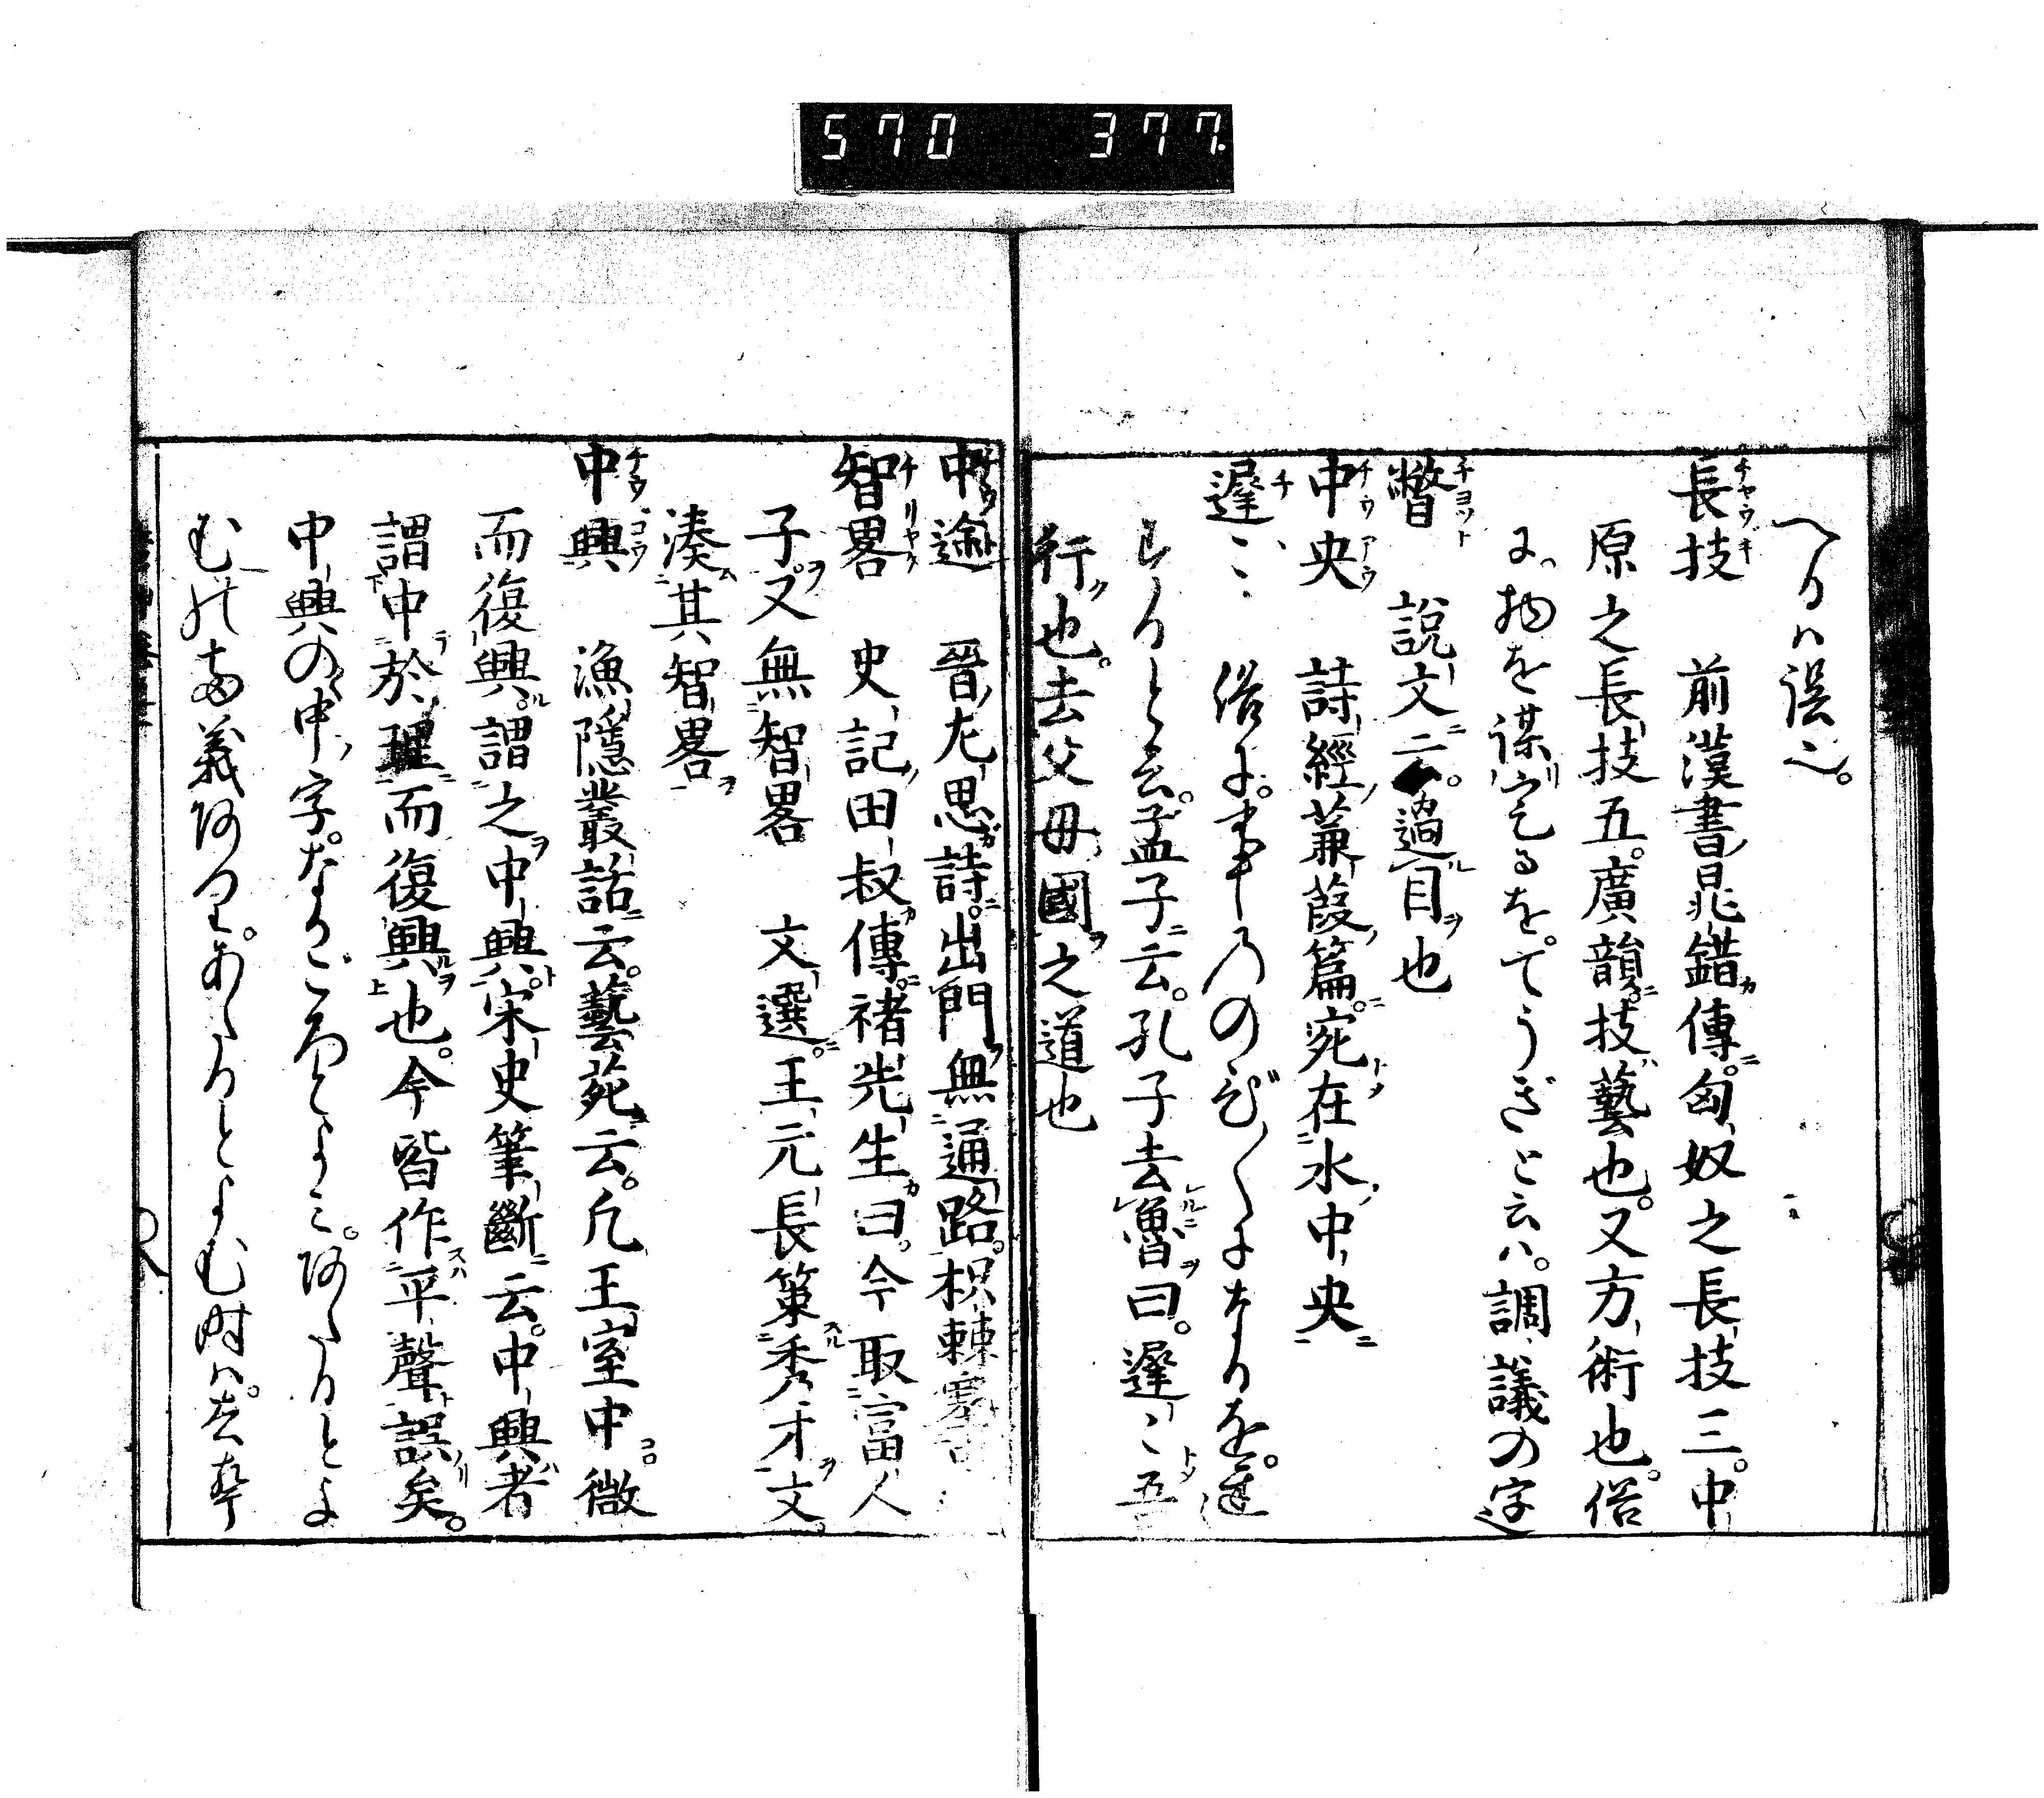 570 377.
へるハ誤也。
長技 前漢書晁錯傳。匈奴之長技三。中
原之長技五。廣韻。技藝也。又方術也。俗
に。物を謀定るを。てうぎと云ハ。調議の字也
瞥 説文云。過目也
中央 詩經蒹葭篇。宛在水中央
遲〻 俗に。事乃のび〳〵になるを。遲
するると云。孟子云。孔子去魯曰。遲〻吾
行也。去父母國之道也
中途 晉左思詩。出門無通路。枳棘塞
智畧 史記田叔傳。褚先生曰。今取富人
子。又無智畧 文選。王元長策秀才文。
湊其智畧
中興 漁隱叢話云。藝苑云。凡王室中微
而復興。謂之中興。宋史筆斷云。中興者
謂中於理而復興也。今皆作平聲誤矣。
中興の中字。なかごろとよミ。阿たるとよ
む此両義阿り。あたるとよむ時ハ。去聲